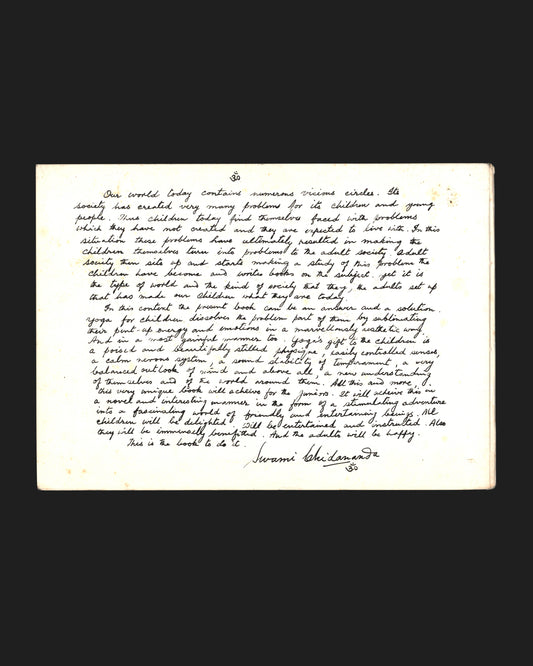 ॐ
Our world today contains numerous vicious circles. Its
society has created very many problems for its children and young
people. Thus children today find themselves faced with problems
which they have not created and they are expected to live with. In this
situation these problems have ultimately resulted in making the
children themselves turn into problems to the adult society. Adult
society then sits up and starts making a study of this problem the
children have become and writes books on the subject. Yet it is
the type of world and the kind of society that they, the adults set up
that has made our children what they are today.
In this context the present book can be an answer and a solution.
Yoga for children dissolves the problem part of them by sublimating
their pent-up energy and emotions in a marvellously aesthetic way.
And in a most gainful manner too. Yogi's gift to the children is
a poised and beautifully stilled physique, easily controlled senses,
a calm nervous system, a sound stability of temperament, a very
balanced outlook of mind and above all, a new understanding
of themselves and of the world around them. All this and more,
this very unique book will acheive for the juniors. It will acheive this in
a novel and interesting manner in the form of a stimulating adventure
into a fascinating world of friendly and entertaining beings. All
children will be delighted. Will be entertained and instructed. Also
they will be immensely benefitted. And the adults will be happy.
This is the book to do it.
Swami Chidananda
ॐ